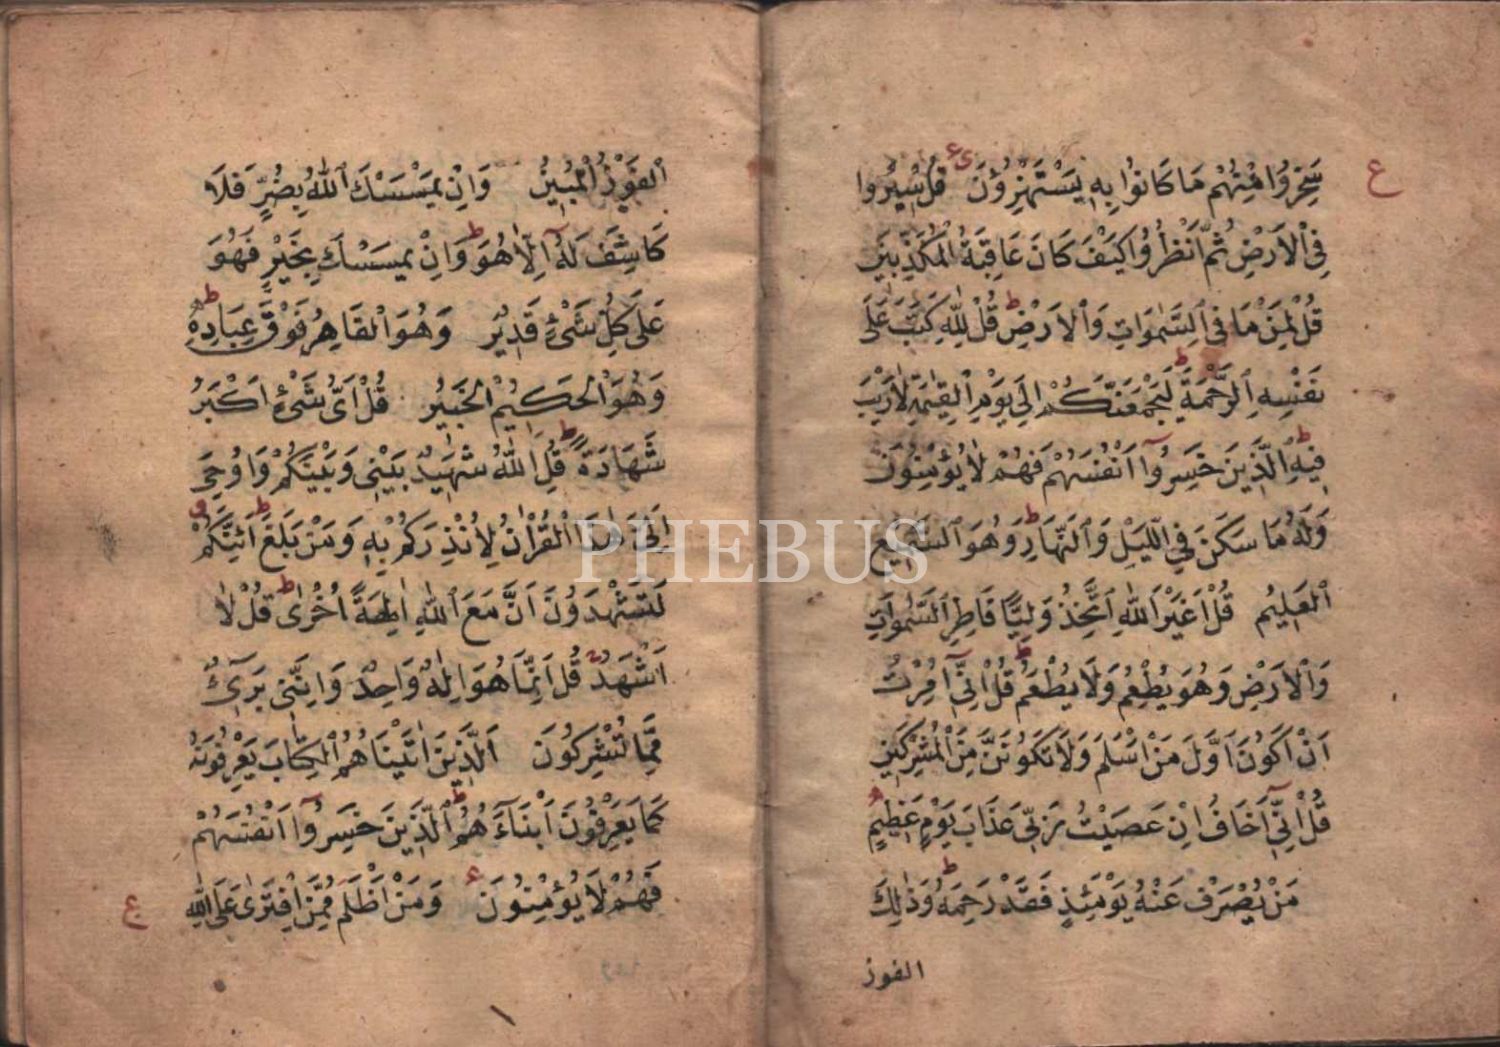 سَخِرُوا مِنْهُمْ مَا كَانُوا بِهِ يَسْتَهْزِؤُنَ قُلْ سِيرُوا
فِي الْاَرْضِ ثُمَّ انْظُرُوا كَيْفَ كَانَ عَاقِبَةُ الْمُكَذِّبِينَ
قُلْ لِمَنْ مَا فِي السَّمٰوَاتِ وَالْاَرْضِ قُلْ لِلّٰهِ كَتَبَ عَلٰى
نَفْسِهِ الرَّحْمَةَ لَيَجْمَعَنَّكُمْ اِلٰى يَوْمِ الْقِيٰمَةِ لَا رَيْبَ
فِيهِ الَّذِينَ خَسِرُوا اَنْفُسَهُمْ فَهُمْ لَا يُؤْمِنُونَ
وَلَهُ مَا سَكَنَ فِي الَّيْلِ وَالنَّهَارِ وَهُوَ السَّمِيعُ
الْعَلِيمُ قُلْ اَغَيْرَ اللّٰهِ اَتَّخِذُ وَلِيًّا فَاطِرِ السَّمٰوَاتِ
وَالْاَرْضِ وَهُوَ يُطْعِمُ وَلَا يُطْعَمُ قُلْ اِنِّي اُمِرْتُ
اَنْ اَكُونَ اَوَّلَ مَنْ اَسْلَمَ وَلَا تَكُونَنَّ مِنَ الْمُشْرِكِينَ
قُلْ اِنِّي اَخَافُ اِنْ عَصَيْتُ رَبِّي عَذَابَ يَوْمٍ عَظِيمٍ
مَنْ يُصْرَفْ عَنْهُ يَوْمَئِذٍ فَقَدْ رَحِمَهُ وَذٰلِكَ
الفوز
ع
الْفَوْزُ الْمُبِينُ وَاِنْ يَمْسَسْكَ اللّٰهُ بِضُرٍّ فَلَا
كَاشِفَ لَهُ اِلَّا هُوَ وَاِنْ يَمْسَسْكَ بِخَيْرٍ فَهُوَ
عَلٰى كُلِّ شَيْءٍ قَدِيرٌ وَهُوَ الْقَاهِرُ فَوْقَ عِبَادِهِ
وَهُوَ الْحَكِيمُ الْخَبِيرُ قُلْ اَيُّ شَيْءٍ اَكْبَرُ
شَهَادَةً قُلِ اللّٰهُ شَهِيدٌ بَيْنِي وَبَيْنَكُمْ وَاُوحِيَ
اِلَيَّ هٰذَا الْقُرْاٰنُ لِاُنْذِرَكُمْ بِهِ وَمَنْ بَلَغَ اَئِنَّكُمْ
لَتَشْهَدُونَ اَنَّ مَعَ اللّٰهِ اٰلِهَةً اُخْرٰى قُلْ لَا
اَشْهَدُ قُلْ اِنَّمَا هُوَ اِلٰهٌ وَاحِدٌ وَاِنَّنِي بَرِيءٌ
مِمَّا تُشْرِكُونَ اَلَّذِينَ اٰتَيْنَاهُمُ الْكِتَابَ يَعْرِفُونَهُ
كَمَا يَعْرِفُونَ اَبْنَاءَهُمُ الَّذِينَ خَسِرُوا اَنْفُسَهُمْ
فَهُمْ لَا يُؤْمِنُونَ وَمَنْ اَظْلَمُ مِمَّنِ افْتَرٰى عَلَى اللّٰهِ
ع
PHEBUS